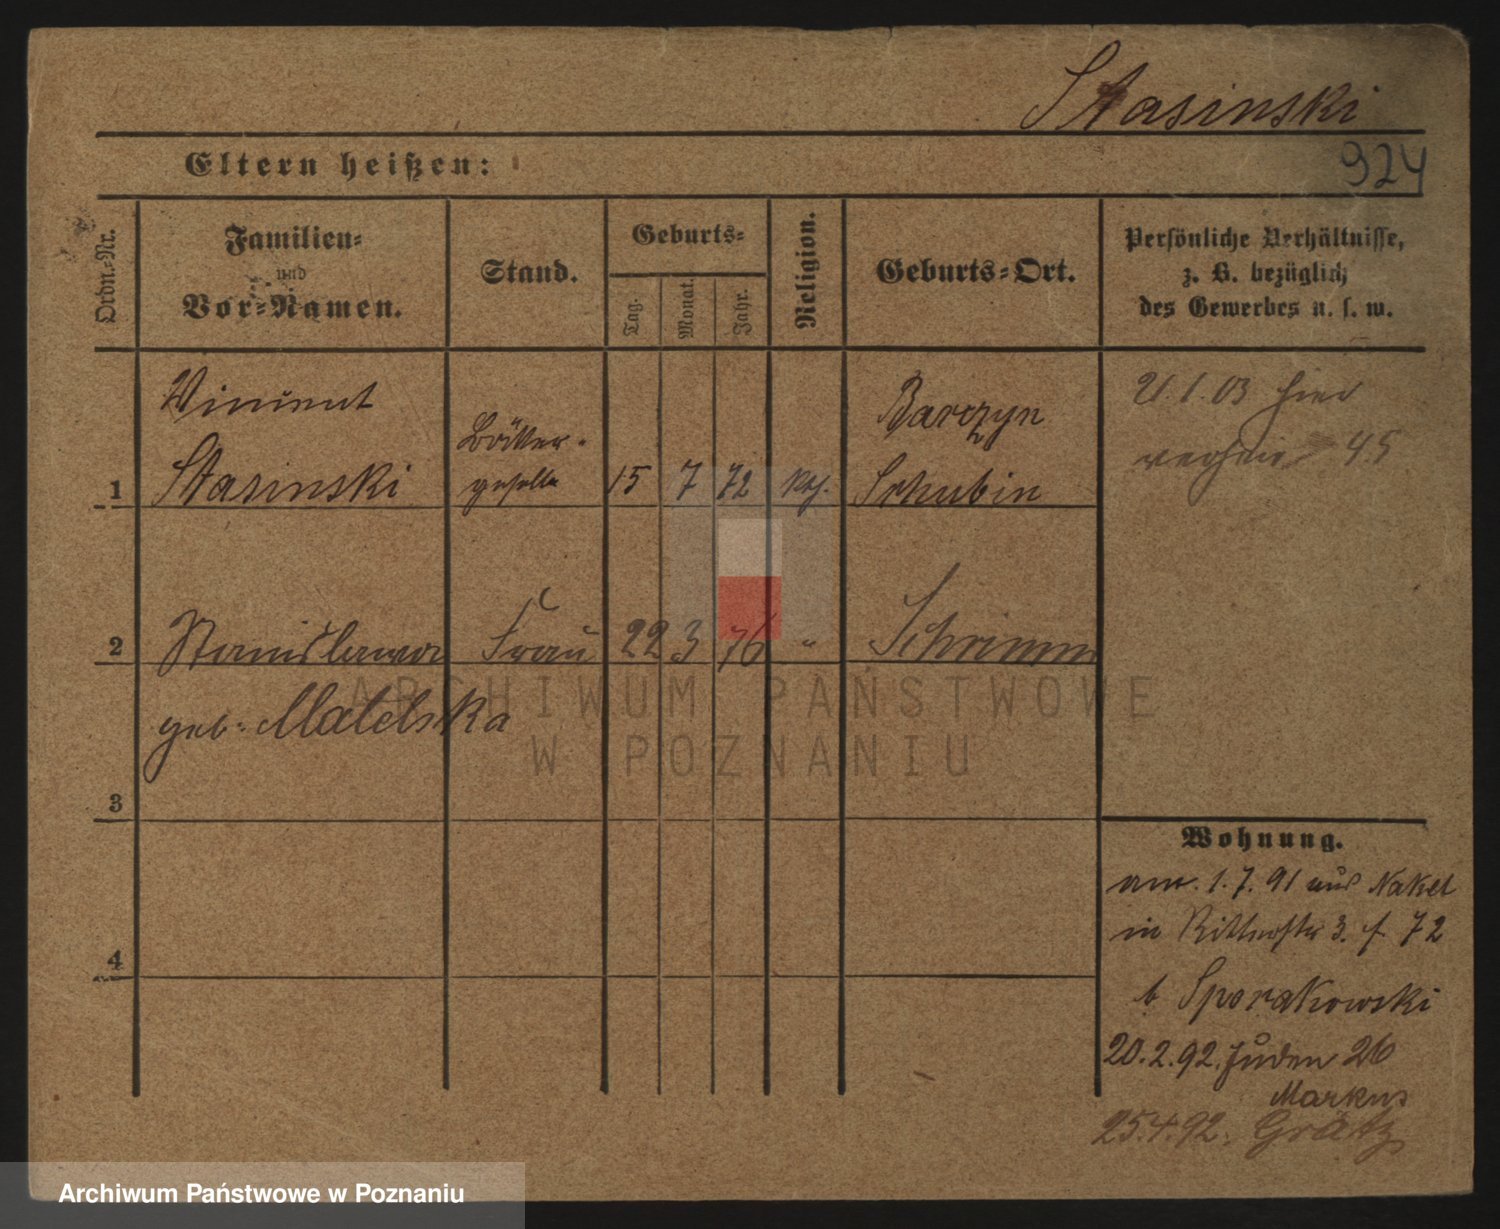 Stasinski
924
Eltern heißen:
Ordn.-Nr.
Familien-
und
Vor-Namen.
Stand.
Geburts-
Tag.
Monat.
Jahr.
Religion.
Geburts-Ort.
Persönliche Verhältnisse,
z. B. bezüglich
des Gewerbes u. s. w.
1
Vincent
Stasinski
geselle
15
7
72
Barczyn
Schubin
21.1.03 hier
45
2
Stanislawa
geb: Matelska
Frau
22
3
76
"
Schrimm
3
4
Wohnung.
am 1.7.91 aus Nakel
in Ritterstr 3. 72
b Sporakowski
20.2.92. Juden 26
Markus
25.4.92. Grätz
ARCHIWUM PAŃSTWOWE
W POZNANIU
Archiwum Państwowe w Poznaniu